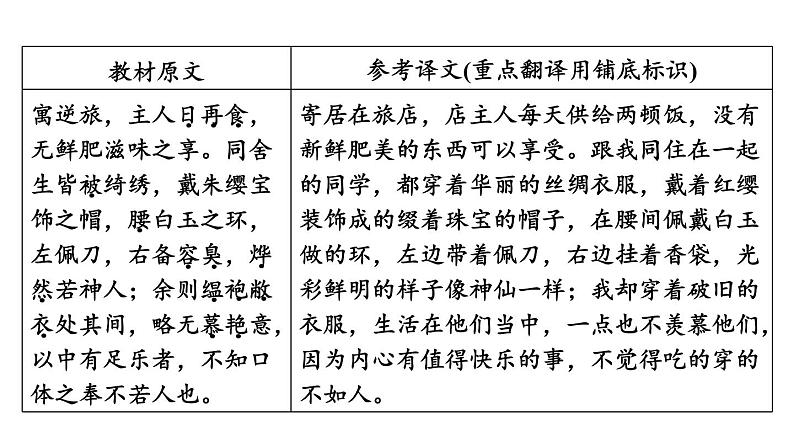 教材原文
参考译文(重点翻译用铺底标识)
寓逆旅，主人日再食，
无鲜肥滋味之享。同舍
生皆被绮绣，戴朱缨宝
饰之帽，腰白玉之环，
左佩刀，右备容臭，烨
然若神人；余则缊袍敝
衣处其间，略无慕艳意，
以中有足乐者，不知口
体之奉不若人也。
寄居在旅店，店主人每天供给两顿饭，没有
新鲜肥美的东西可以享受。跟我同住在一起
的同学，都穿着华丽的丝绸衣服，戴着红缨
装饰成的缀着珠宝的帽子，在腰间佩戴白玉
做的环，左边带着佩刀，右边挂着香袋，光
彩鲜明的样子像神仙一样；我却穿着破旧的
衣服，生活在他们当中，一点也不羡慕他们，
因为内心有值得快乐的事，不觉得吃的穿的
不如人。